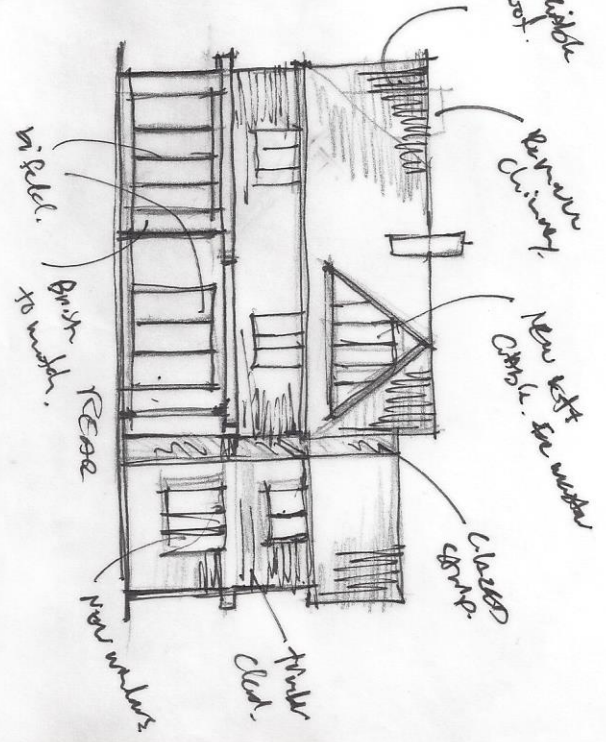 Gable
roof.
Remove
Chimney.
New loft
Gable. for master
Glazed
Timber
Clad.
New windows
REAR
Brick
to match.
bifold.